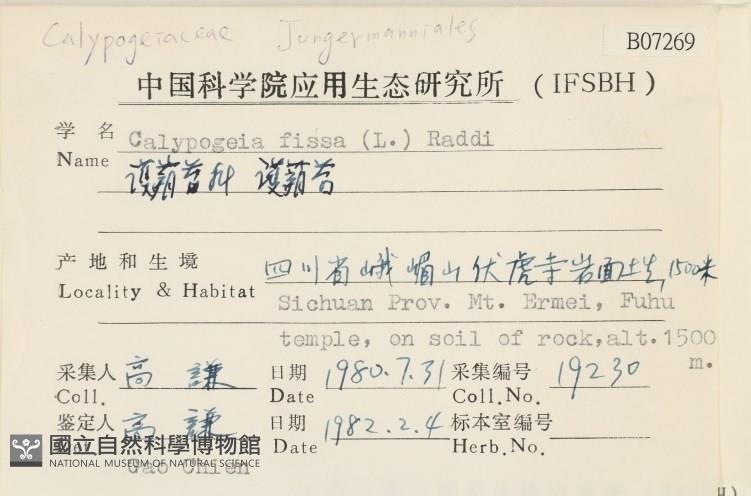 Calypogeiaceae Jungermanniales
B07269
中国科学院应用生态研究所 (IFSBH)
学名 Calypogeia fissa (L.) Raddi
Name
護蒴苔科 護蒴苔
产地和生境 四川省峨嵋山伏虎寺岩面土生,1500米
Locality & Habitat Sichuan Prov. Mt. Ermei, Fuhu
temple, on soil of rock,alt.1500
m.
采集人 高謙 日期 1980.7.31 采集编号 19230
Coll. Date Coll.No.
鉴定人 高謙 日期 1982.2.4 标本室编号
Date Herb.No.
國立自然科學博物館
NATIONAL MUSEUM OF NATURAL SCIENCE
Gao Chien
H)